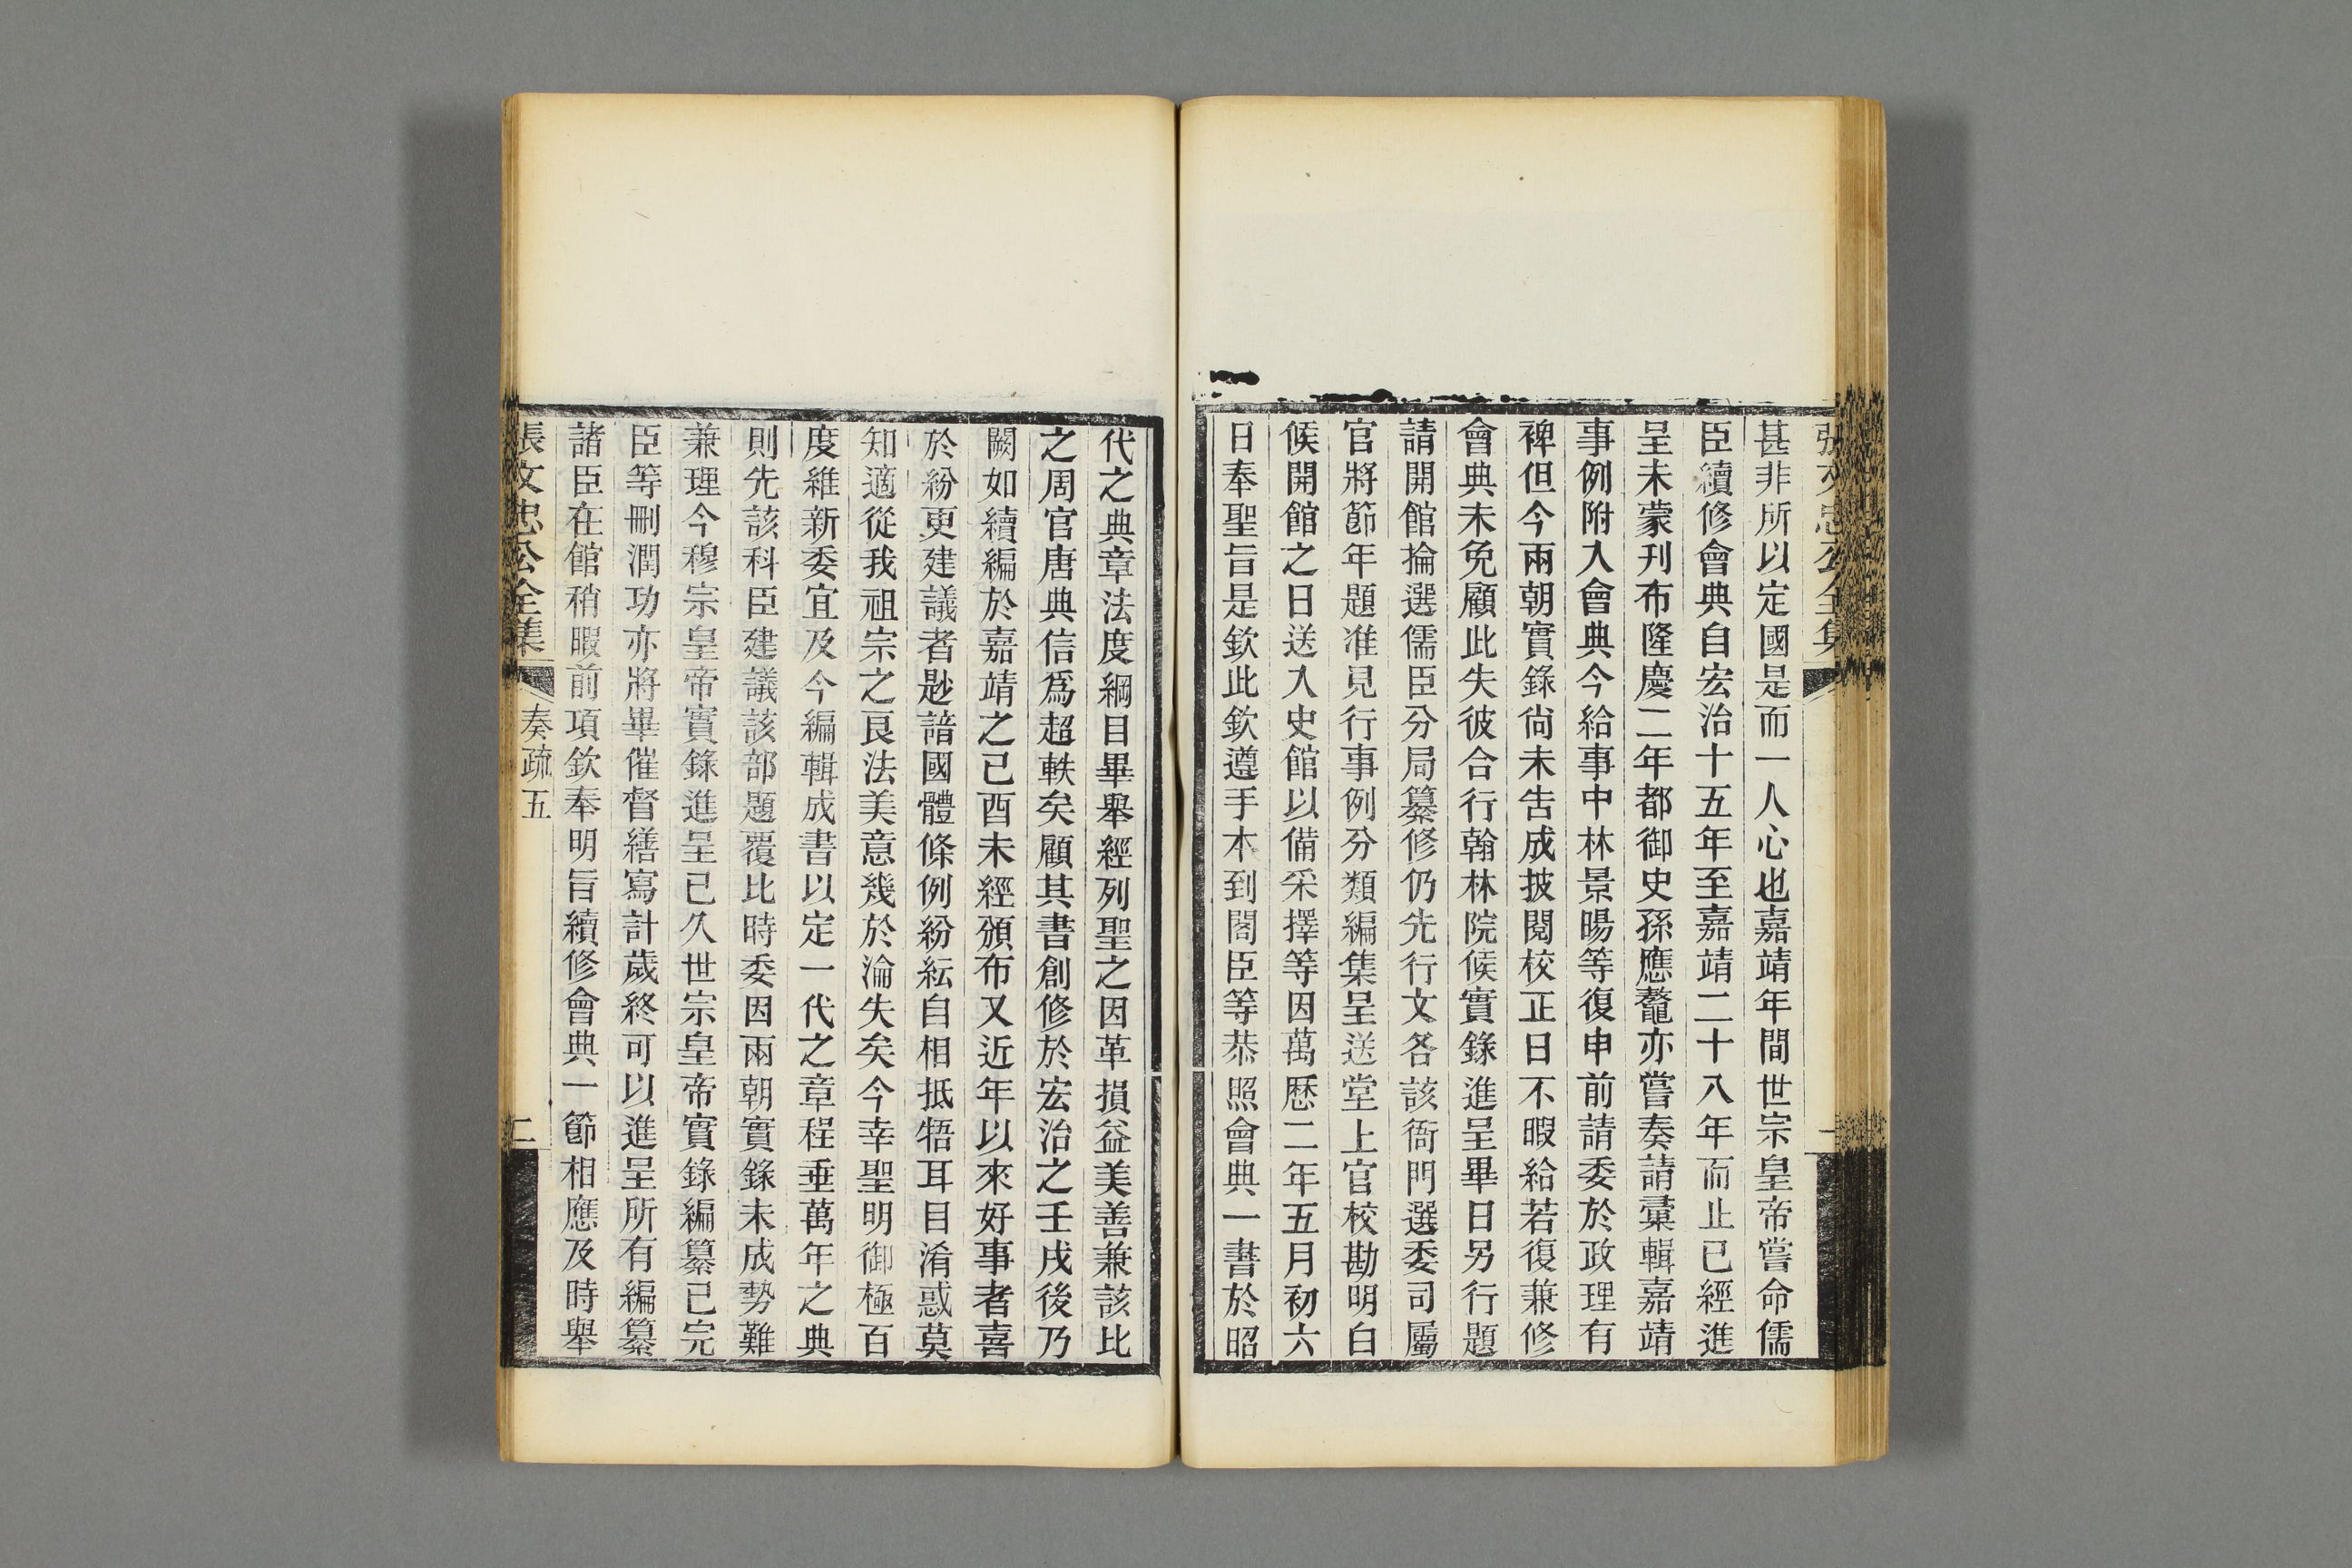 張文忠公全集
一
甚非所以定國是而一人心也嘉靖年間世宗皇帝嘗命儒
臣續修會典自宏治十五年至嘉靖二十八年而止已經進
呈未蒙刊布隆慶二年都御史孫應鼇亦嘗奏請彙輯嘉靖
事例附入會典今給事中林景暘等復申前請委於政理有
裨但今兩朝實錄尙未告成披閱校正日不暇給若復兼修
會典未免顧此失彼合行翰林院候實錄進呈畢日另行題
請開館掄選儒臣分局纂修仍先行文各該衙門選委司屬
官將節年題准見行事例分類編集呈送堂上官校勘明白
候開館之日送入史館以備采擇等因萬歷二年五月初六
日奉聖旨是欽此欽遵手本到閣臣等恭照會典一書於昭
代之典章法度綱目畢舉經列聖之因革損益美善兼該比
之周官唐典信爲超軼矣顧其書創修於宏治之壬戌後乃
闕如續編於嘉靖之已酉未經頒布又近年以來好事者喜
於紛更建議者尟諳國體條例紛紜自相抵牾耳目淆惑莫
知適從我祖宗之良法美意幾於淪失矣今幸聖明御極百
度維新委宜及今編輯成書以定一代之章程垂萬年之典
則先該科臣建議該部題覆比時委因兩朝實錄未成勢難
兼理今穆宗皇帝實錄進呈已久世宗皇帝實錄編纂已完
臣等刪潤功亦將畢催督繕寫計歲終可以進呈所有編纂
諸臣在館稍暇前項欽奉明旨續修會典一節相應及時舉
張文忠公全集
奏疏五
二